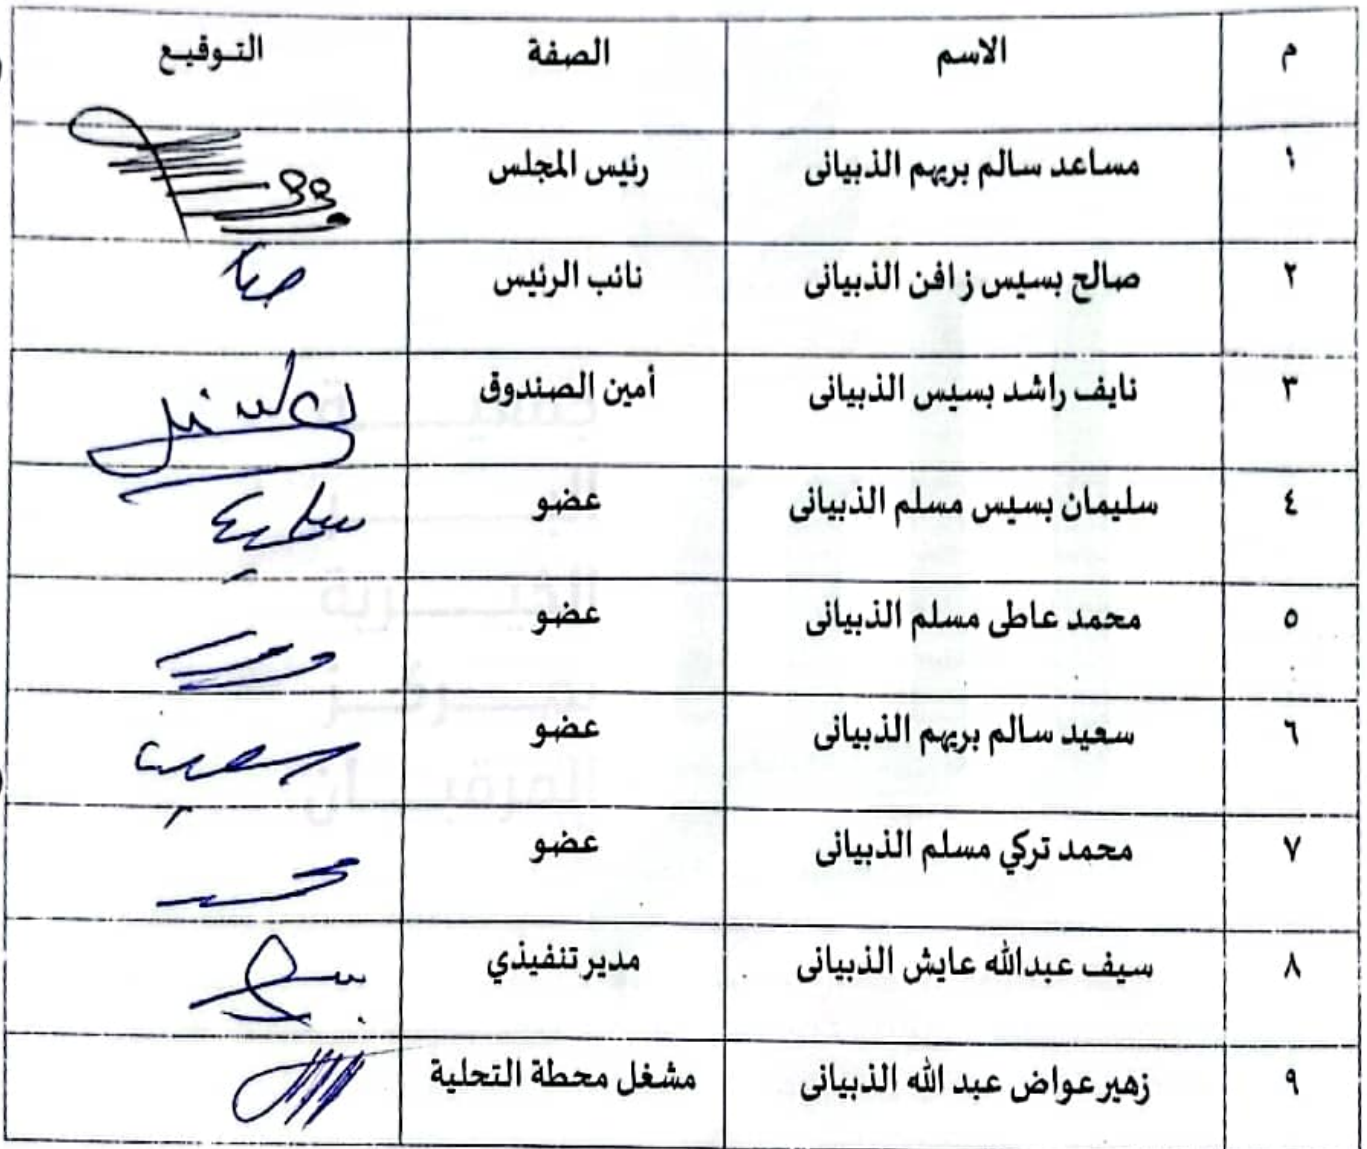 م الاسم الصفة التـوقيـع
١ مساعد سالم بريهم الذبيانى رئيس المجلس
٢ صالح بسيس زافن الذبيانى نائب الرئيس
٣ نايف راشد بسيس الذبيانى أمين الصندوق
٤ سليمان بسيس مسلم الذبيانى عضو
٥ محمد عاطى مسلم الذبيانى عضو
٦ سعيد سالم بريهم الذبيانى عضو
٧ محمد تركي مسلم الذبيانى عضو
٨ سيف عبدالله عايش الذبيانى مدير تنفيذي
٩ زهير عواض عبد الله الذبيانى مشغل محطة التحلية